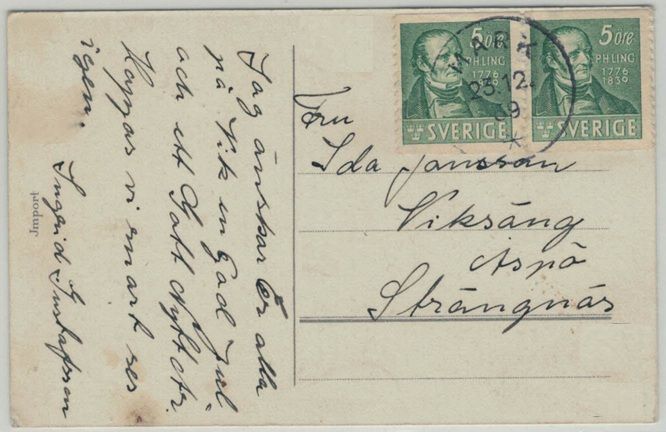 Jag önskar Er alla
på Vik en God Jul
och ett Gott Nytt år.
Hoppas vi snart ses
igen.
Ingerid Gustafsson
Jmport
5 öre
PH LING
1776
1839
SVERIGE
5 öre
PH LING
1776
1839
SVERIGE
23.12.
39
Fru
Ida Jansson
Viksäng
Aspö
Strängnäs